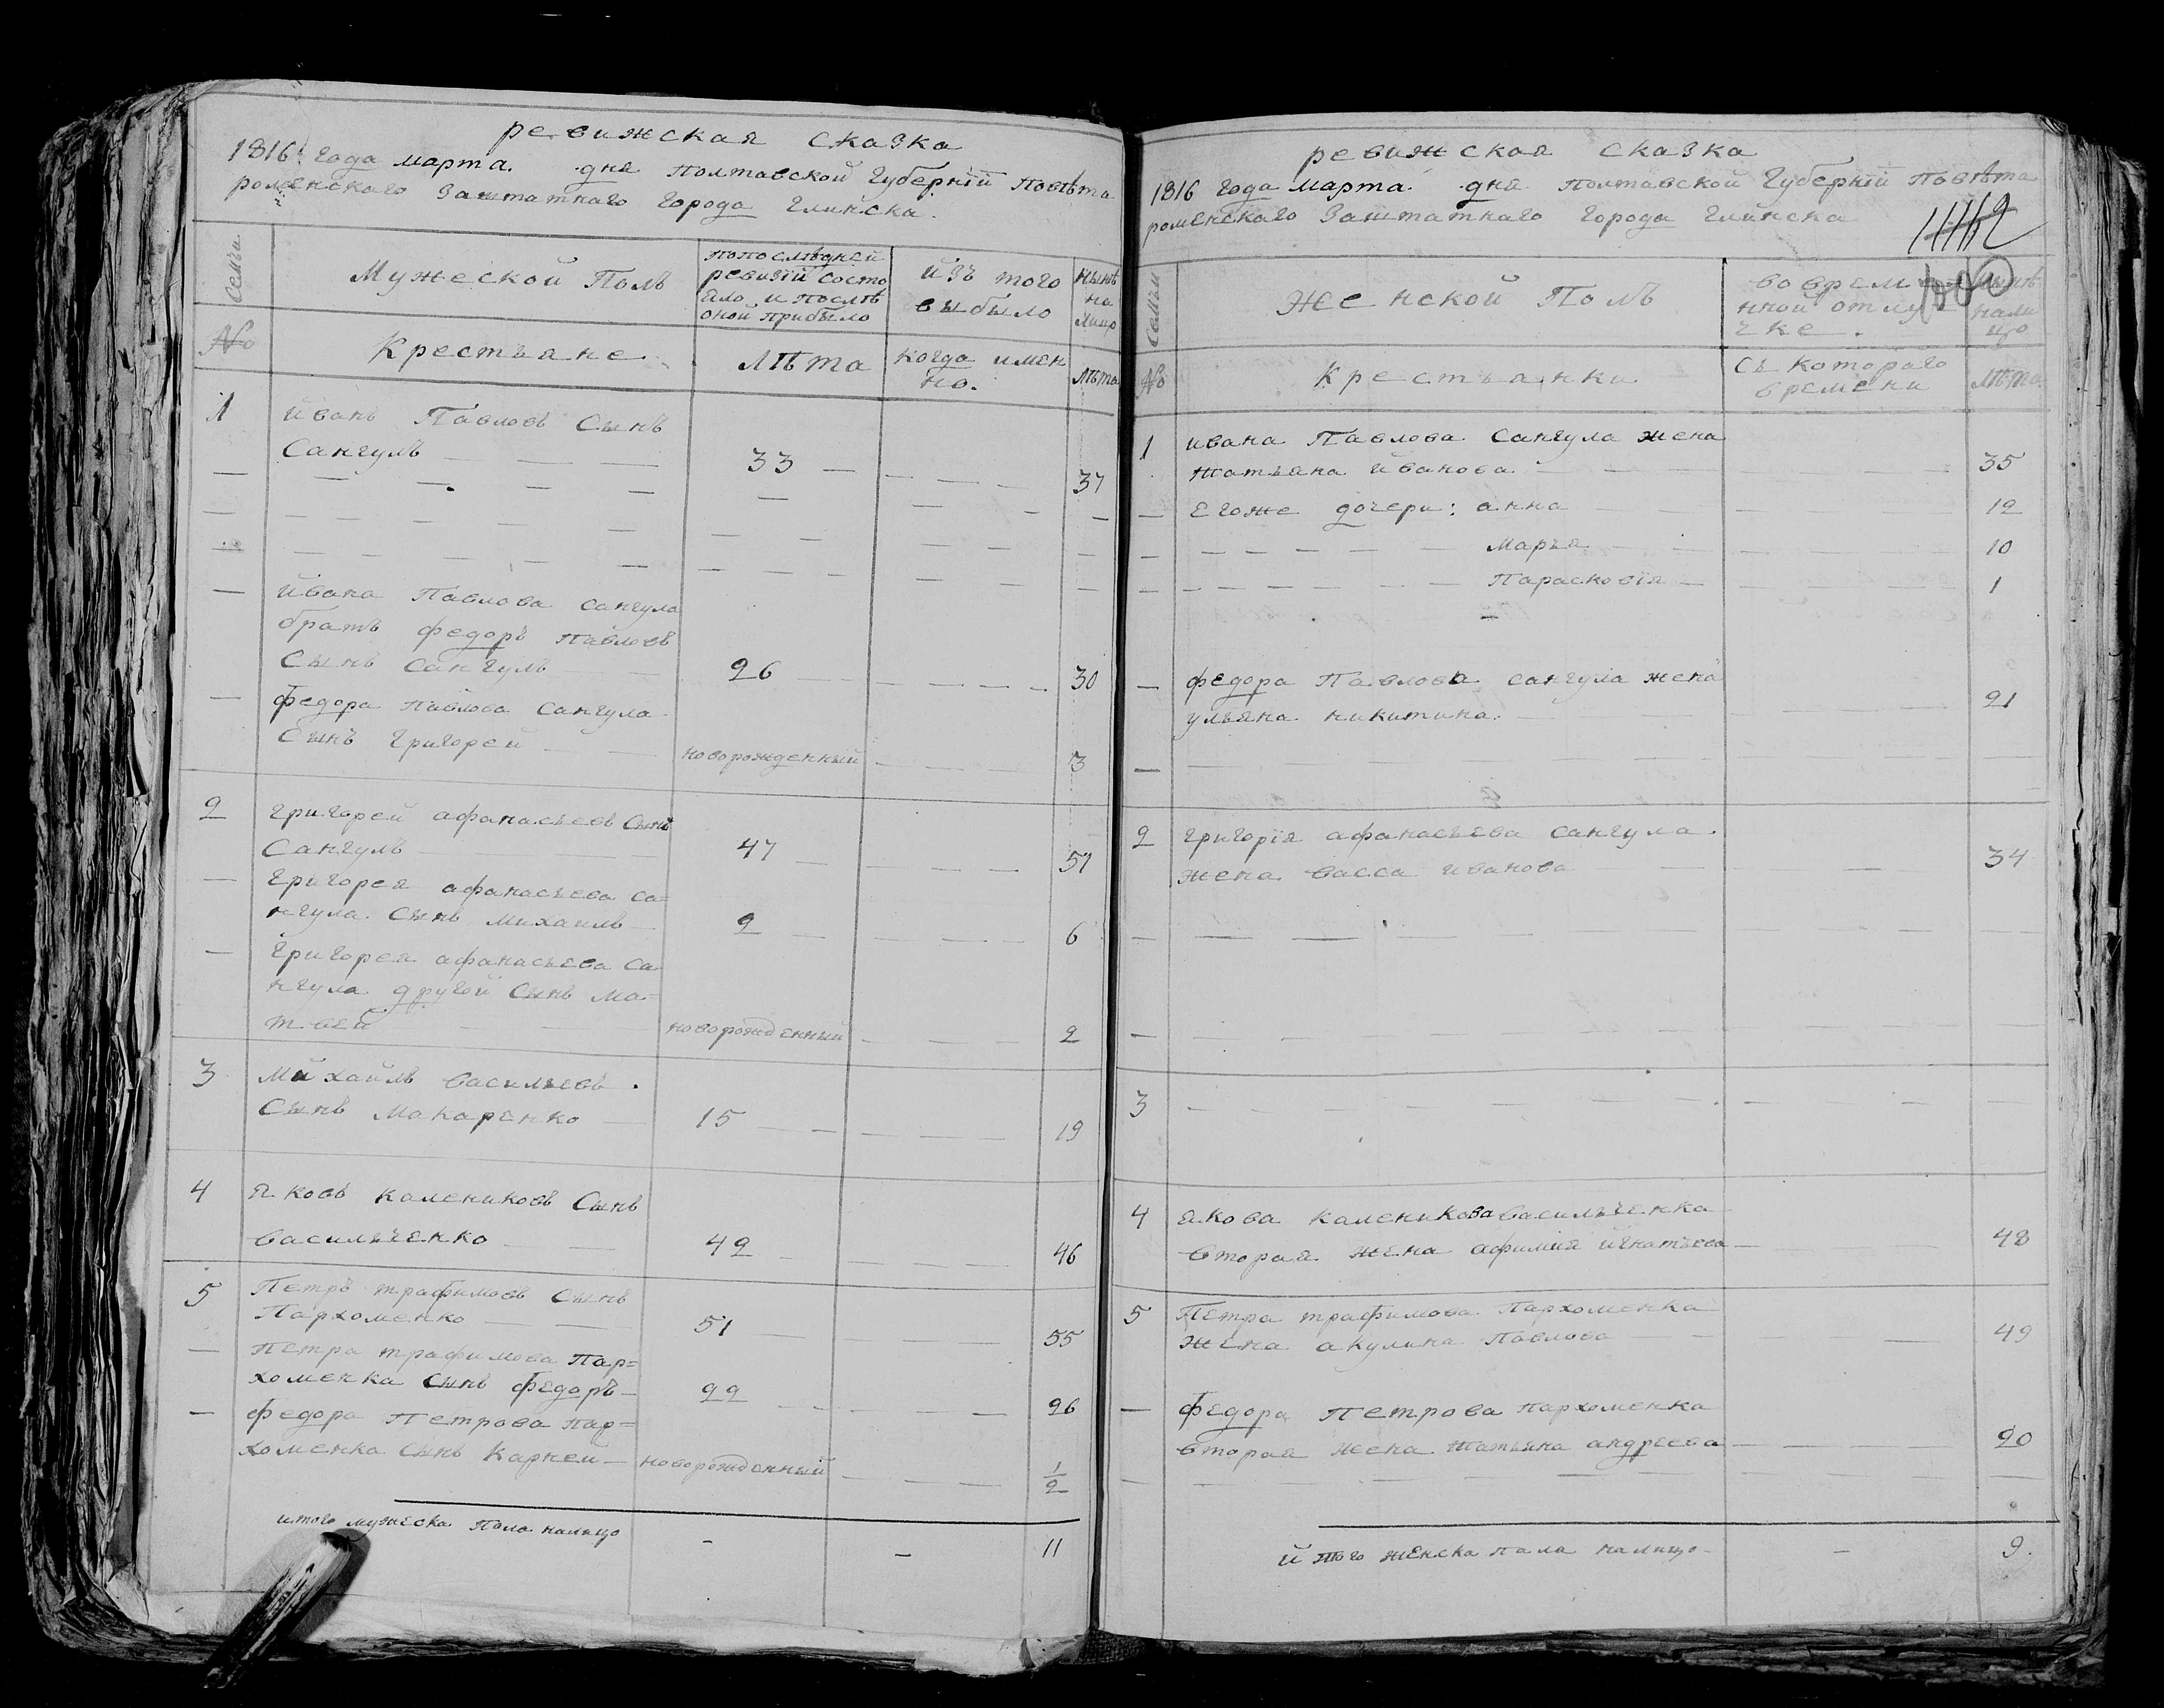 ревижская сказка
1816: года марта. дня Полтавской Губернїй Повѣта
роменскаго Заштатнаго Города Глинска.
Семьи
Мужеской Полъ
попослѣдней
ревизїй состо
яло и послѣ
оной прибыло
йзъ того
выбыло
Нынѣ
на
лицо
№
Крестьяне
Лѣта
Когда имен
но.
лѣта
1
йванъ Павловъ Сынъ
Сангулъ
33
37
йвана Павлова сангула
братъ федоръ павловъ
Сынъ сангулъ
26
30
федора павлова Сангула
Сынъ Григорей
новорожденный
3
2
григорей афанасьевъ Сынъ
Сангулъ
47
51
григорея афанасьева са=
нгула сынъ михаилъ
2
6
григорея афанасьева са
нгула другой Сынъ ма=
твей
новорожденный
2
3
Михайлъ васильевъ.
Сынъ Макаренко
15
19
4
яковъ калениковъ Сынъ
васильченко
42
46
5
Петръ трафимовъ Сынъ
Пархоменко
51
55
петра трафимова Пар=
хоменка сынъ федоръ
22
26
федора Петрова пар=
хоменка сынъ Карней
новорожденный
1/2
итого мужеска пола налицо
11
ревижская сказка
1816 года марта. дня Полтавской Губернїй Повѣта
роменскаго Заштатнаго Города Глинска
Семьи
Женской Полъ
вовреме
нной отлу
чке.
нали
цо
№
Крестьянки
съ котораго
времени
лѣта
1
ивана Павлова Сангула жена
татьяна йванова
35
Егоже дочери: анна
12
Марья
10
Парасковїя
1
федора Павлова сангула жена
ульяна никитина.
21
2
григорїя афанасьева сангула
жена васса иванова
34
3
4
якова каленикова васильченка
вторая жена афимия йгнатьева
48
5
Петра трафимова Пархоменка
жена акулина Павлова
49
федора Петрова пархоменка
вторая жена татьяна андреева
20
йтого женска пала налицо
9.